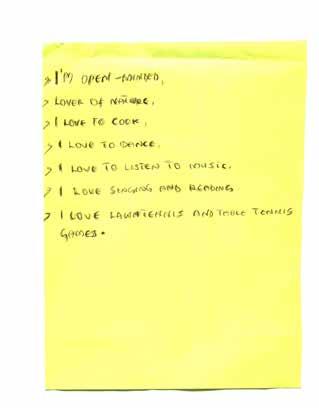 > I'M OPEN-MINDED,
> LOVER OF NATURE,
> I LOVE TO COOK,
> I LOVE TO DANCE,
> I LOVE TO LISTEN TO MUSIC.
> I LOVE SINGING AND READING
> I LOVE LAWNTENNIS AND TABLE TENNIS
GAMES.